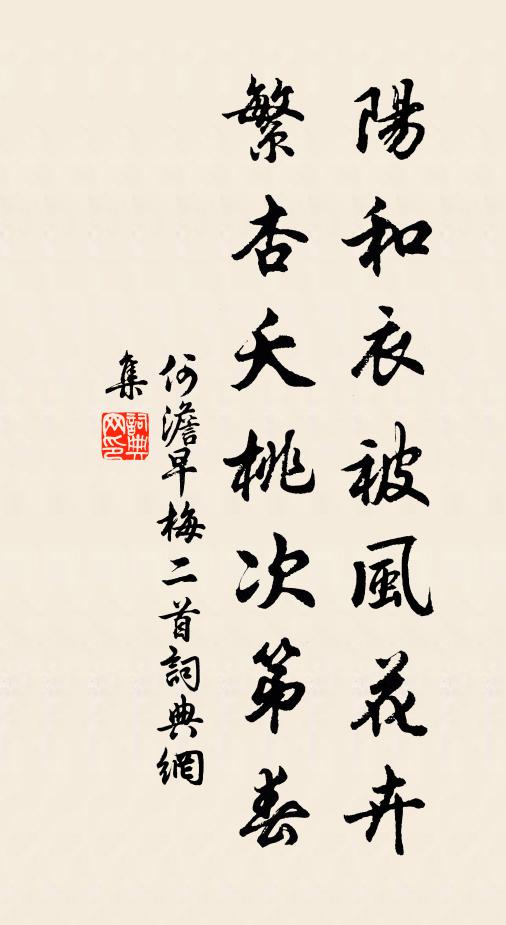 陽和衣被風花卉
繁杏夭桃次第春
何澹早梅二首詞典網
集
詞典
网印